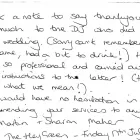 k a note to say thankyou
much to the DJ who did
wedding (Sorry can't remember
ame, had a bit to drink!)
so professional and carried out
instructions to the letter! (
what we mean!)
ould have no hesitation in
mending your service to an
Martin + Sharon Maher
The Hey Green - Friday